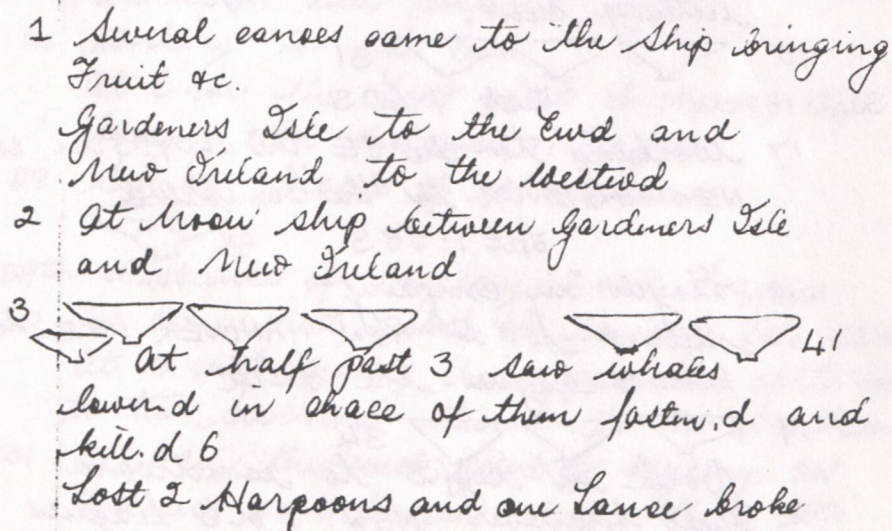 1 Several canoes came to the Ship bringing
Fruit &c.
Gardeners Isle to the Ewd and
New Ireland to the Westwd
2 At Noon ship between Gardeners Isle
and New Ireland
3
41
At half past 3 saw whales
lower.d in chace of them fasten.d and
kill.d 6
Lost 2 Harpoons and one Lance broke